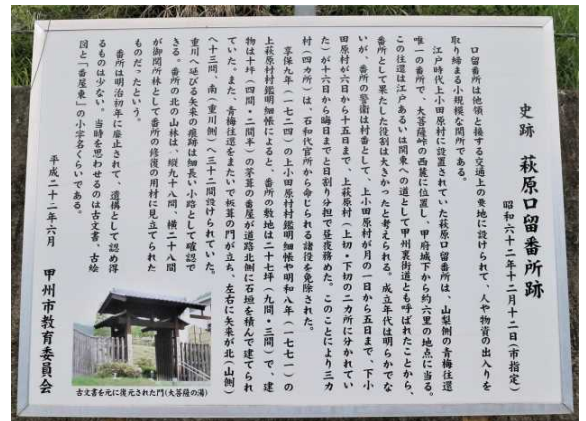 史跡　萩原口留番所跡
昭和六十二年十二月十二日(市指定)
口留番所は他領と接する交通上の要地に設けられて、人や物資の出入りを
取り締まる小規模な関所である。
江戸時代上小田原村に設置されていた萩原口留番所は、山梨側の青梅往還
唯一の番所で、大菩薩峠の西麓に位置し、甲府城下から約六里の地点に当る。
この往還は江戸あるいは関東への道として甲州裏街道とも呼ばれたことから、
番所として果たした役割は大きかったと考えられる。成立年代は明らかでな
いが、番所の警衛は村番として、上小田原村が月の一日から五日まで、下小
田原村が六日から十五日まで、上萩原村(上切・下切の二カ所に分かれてい
た)が十六日から晦日までと日割り分担で昼夜務めた。このことにより三カ
村(四カ所)は、石和代官所から命じられる諸役を免除された。
享保九年(一七二四)の上小田原村村鑑明細帳や明和八年(一七七一)の
上萩原村村鑑明細帳によると、番所の敷地は二十七坪(九間・三間)で、建
物は十坪(四間・二間半)の茅葺の番屋が道路北側に石垣を積んで建てられ
ていた。また、青梅往還をまたいで板葺の門が立ち、左右に矢来が北(山側)
へ十三間、南(重川側)へ三十二間設けられていた。
重川へ延びる矢来の痕跡は細長い小路として確認で
きる。番所の北の山林は、縦九十八間、横二十八間
が御関所林として番所の修復の用材に見立てられた
ものだったという。
番所は明治初年に廃止されて、遺構として認め得
るものは少ない。当時を思わせるのは古文書、古絵
図と「番屋東」の小字名くらいである。
平成二十二年六月　甲州市教育委員会
古文書を元に復元された門(大菩薩の湯)